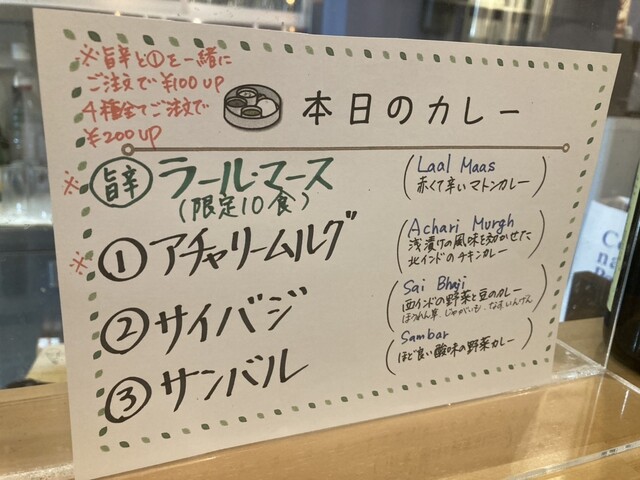 ※旨辛と①を一緒に
ご注文で¥100UP
4種全てご注文で
¥200UP
本日のカレー
※旨辛 ラール・マース
(限定10食)
(Laal Maas
赤くて辛いマトンカレー)
※① アチャリームルグ
(Achari Murgh
浅漬けの風味を効かせた
北インドのチキンカレー)
② サイバジ
(Sai Bhaji
西インドの野菜と豆のカレー
ほうれん草、じゃがいも、なす、いんげん)
③ サンバル
(Sambar
ほど良い酸味の野菜カレー)